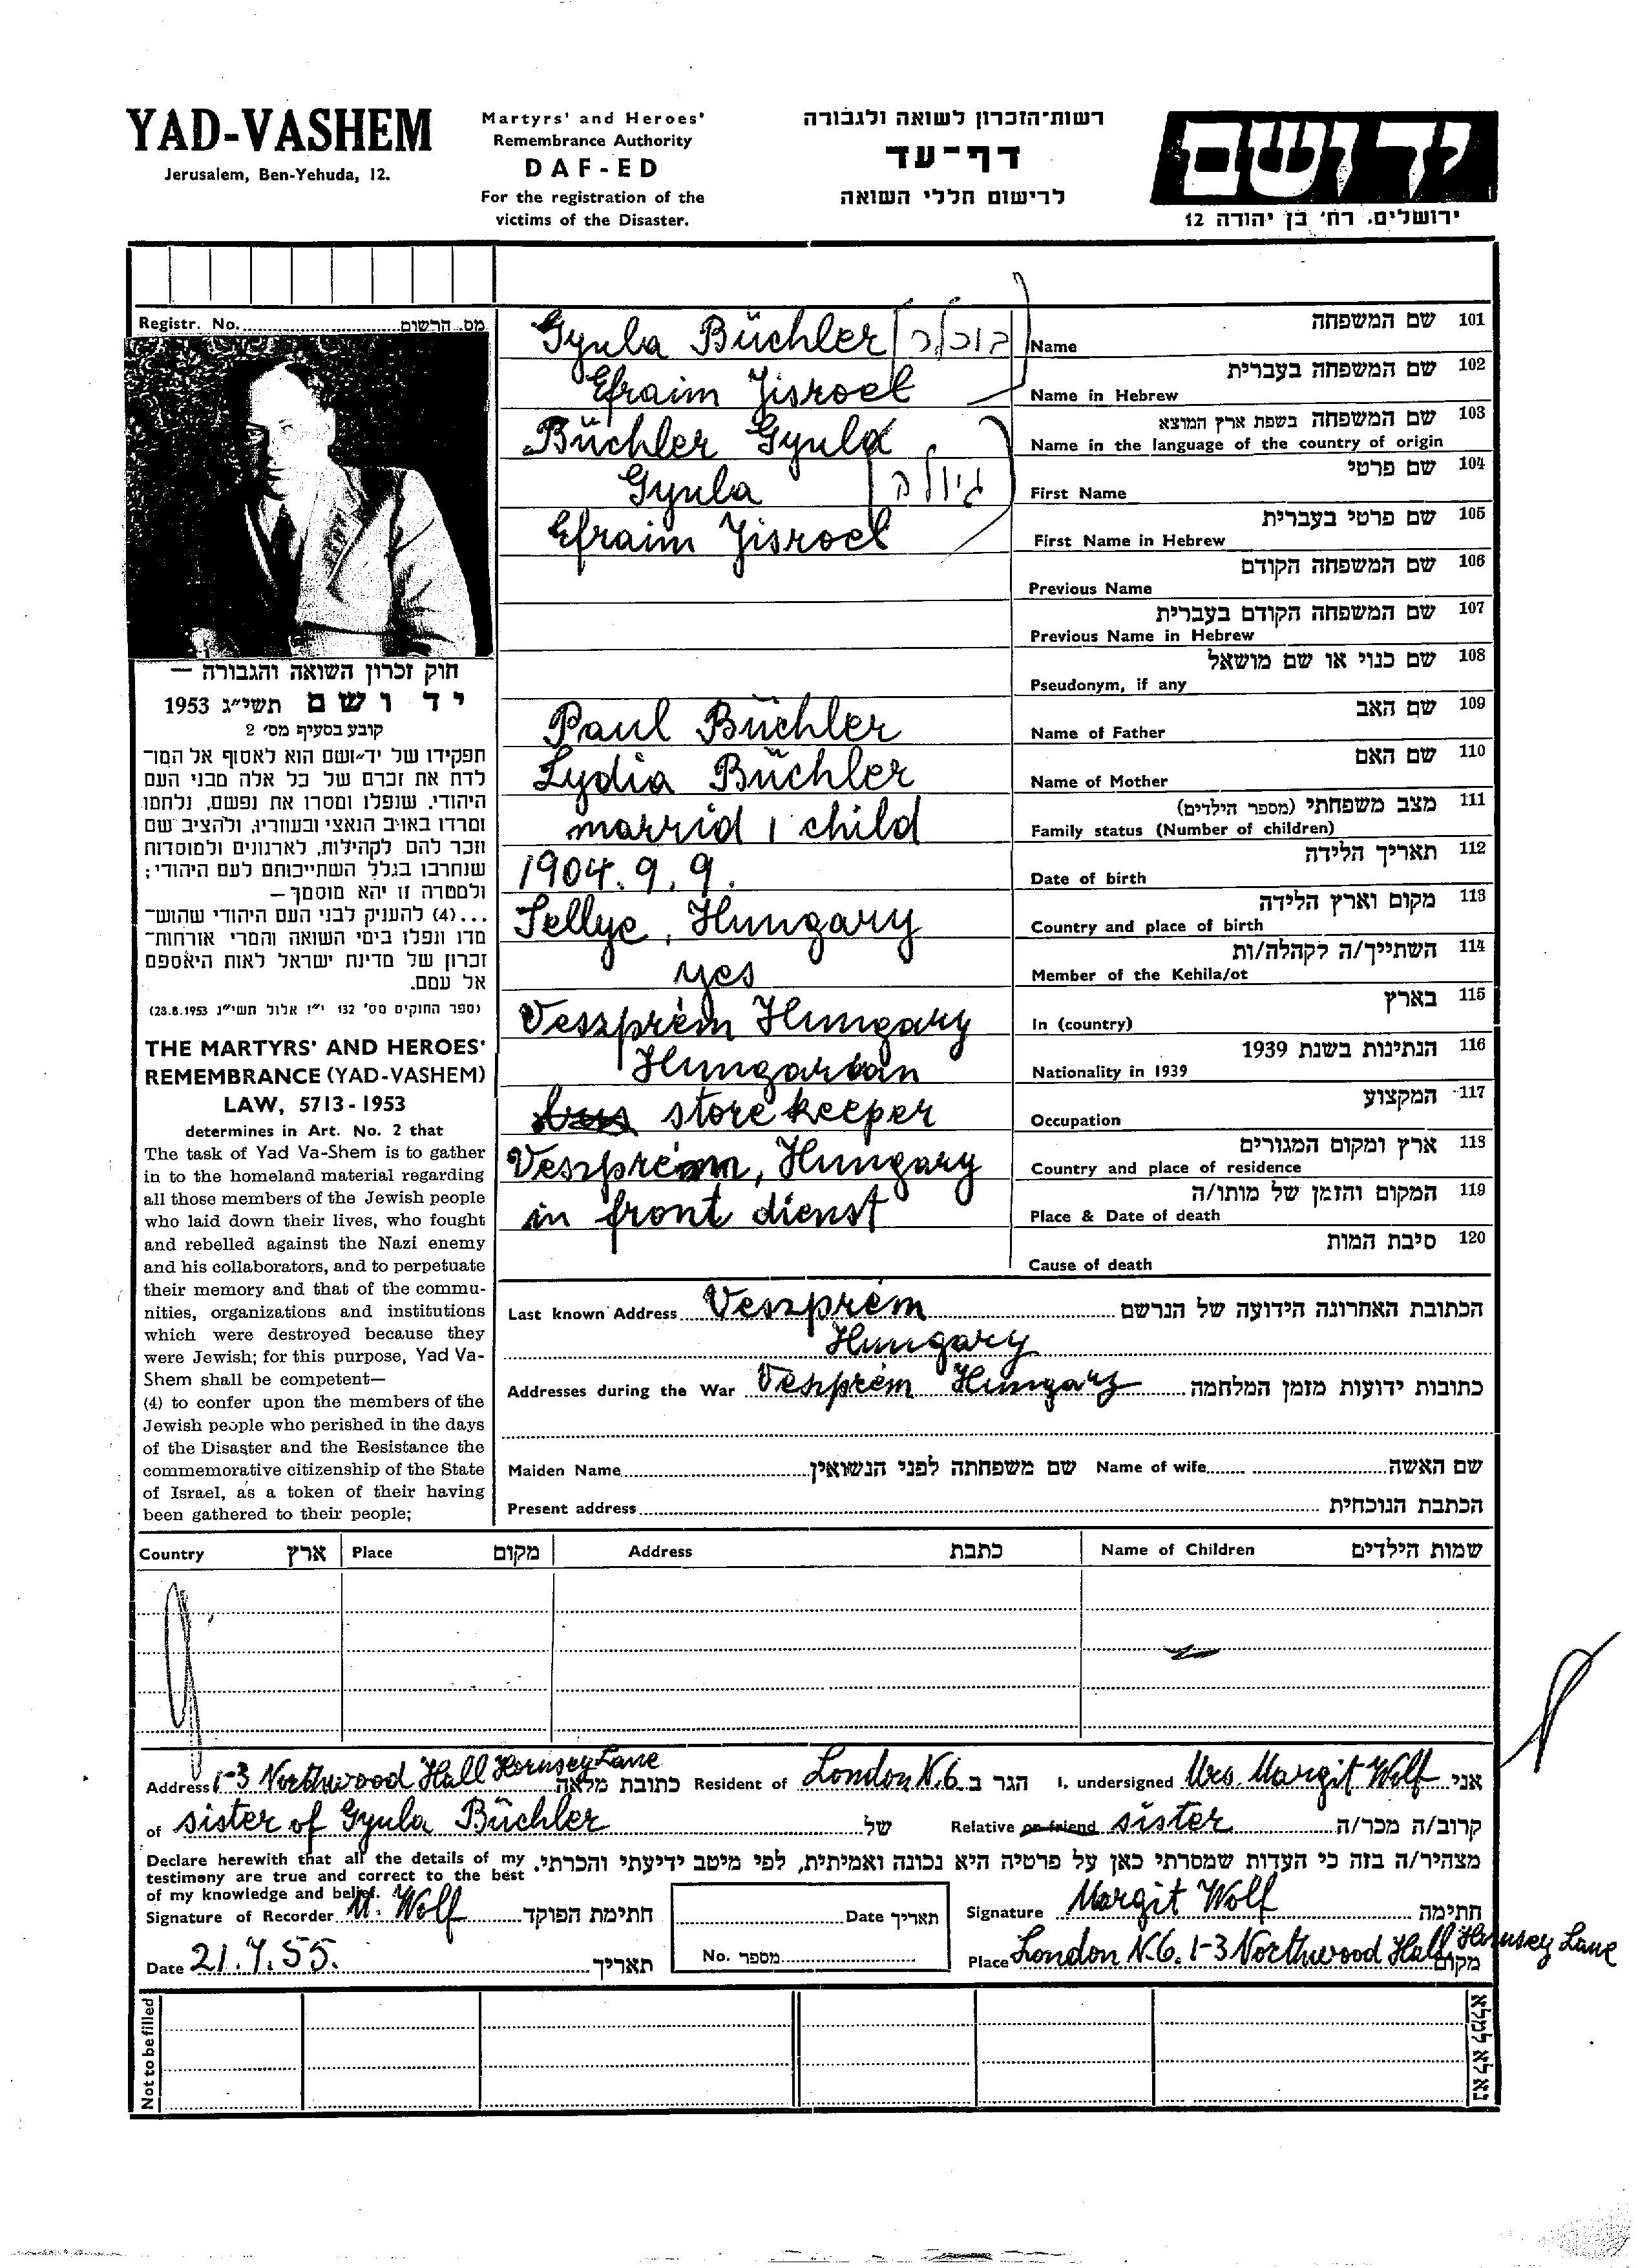 YAD-VASHEM
Jerusalem, Ben-Yehuda, 12.
Martyrs' and Heroes'
Remembrance Authority
DAF-ED
For the registration of the
victims of the Disaster.
רשות-הזכרון לשואה ולגבורה
דף-עד
לרישום חללי השואה
יד ושם
ירושלים. רח' בן יהודה 12
Registr. No. מס. הרשום
חוק זכרון השואה והגבורה —
יד ושם תשי״ג 1953
קובע בסעיף מס' 2
תפקידו של יד-ושם הוא לאסוף אל המו־
לדת את זכרם של כל אלה מבני העם
היהודי, שנפלו ומסרו את נפשם, נלחמו
ומרדו באויב הנאצי ובעוזריו, ולהציב שם
וזכר להם לקהילות, לארגונים ולמוסדות
שנחרבו בגלל השתייכותם לעם היהודי;
ולמטרה זו יהא מוסמך—
...(4) להעניק לבני העם היהודי שהוש־
מדו ונפלו בימי השואה והמרי אזרחות־
זכרון של מדינת ישראל לאות היאספם
אל עמם.
(ספר החוקים מס' 132 י״ז אלול תשי״ג 28.8.1953)
THE MARTYRS' AND HEROES'
REMEMBRANCE (YAD-VASHEM)
LAW, 5713-1953
determines in Art. No. 2 that
The task of Yad Va-Shem is to gather
in to the homeland material regarding
all those members of the Jewish people
who laid down their lives, who fought
and rebelled against the Nazi enemy
and his collaborators, and to perpetuate
their memory and that of the commu-
nities, organizations and institutions
which were destroyed because they
were Jewish; for this purpose, Yad Va-
Shem shall be competent—
(4) to confer upon the members of the
Jewish people who perished in the days
of the Disaster and the Resistance the
commemorative citizenship of the State
of Israel, as a token of their having
been gathered to their people;
Gyula Büchler בוכלר Name שם המשפחה 101
Efraim Jisroel Name in Hebrew שם המשפחה בעברית 102
Büchler Gyula Name in the language of the country of origin שם המשפחה בשפת ארץ המוצא 103
Gyula גיולה First Name שם פרטי 104
Efraim Jisroel First Name in Hebrew שם פרטי בעברית 105
Previous Name שם המשפחה הקודם 106
Previous Name in Hebrew שם המשפחה הקודם בעברית 107
Pseudonym, if any שם כנוי או שם מושאל 108
Paul Büchler Name of Father שם האב 109
Lydia Büchler Name of Mother שם האם 110
marrid 1 child Family status (Number of children) מצב משפחתי (מספר הילדים) 111
1904. 9. 9. Date of birth תאריך הלידה 112
Sellye, Hungary Country and place of birth מקום וארץ הלידה 113
yes Member of the Kehila/ot השתייך/ה לקהלה/ות 114
Veszprém Hungary In (country) בארץ 115
Hungarian Nationality in 1939 הנתינות בשנת 1939 116
store keeper Occupation המקצוע 117
Veszprém, Hungary Country and place of residence ארץ ומקום המגורים 118
in front dienst Place & Date of death המקום והזמן של מותו/ה 119
Cause of death סיבת המות 120
Last known Address Veszprém הכתובת האחרונה הידועה של הנרשם
Hungary
Addresses during the War Veszprém Hungary כתובות ידועות מזמן המלחמה
Maiden Name שם משפחתה לפני הנשואין Name of wife שם האשה
Present address הכתבת הנוכחית
Country ארץ Place מקום Address כתבת Name of Children שמות הילדים
Address 1-3 Northwood Hall Hornsey Lane כתובת מלאה Resident of London N.6 הגר ב I, undersigned Mrs. Margit Wolf אני
of sister of Gyula Büchler של Relative or friend sister קרוב/ה מכר/ה
Declare herewith that all the details of my
testimony are true and correct to the best
of my knowledge and belief.
מצהיר/ה בזה כי העדות שמסרתי כאן על פרטיה היא נכונה ואמיתית, לפי מיטב ידיעתי והכרתי.
Signature of Recorder M. Wolf חתימת הפוקד Date תאריך Signature Margit Wolf חתימה
Date 21.7.55. תאריך No. מספר Place London N.6. 1-3 Northwood Hall Hornsey Lane מקום
Not to be filled נא לא למלא